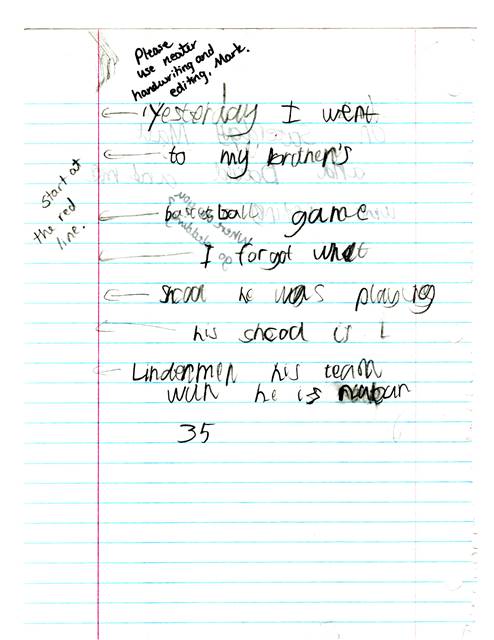 Please
use neater
handwriting and
editing, Mark.
Yesterday I went
to my brother's
start at
the red
line.
bascesball game
I forgot what
shcool he was playing
his shcool is
Lindermen his team
wun he is nunbun
35